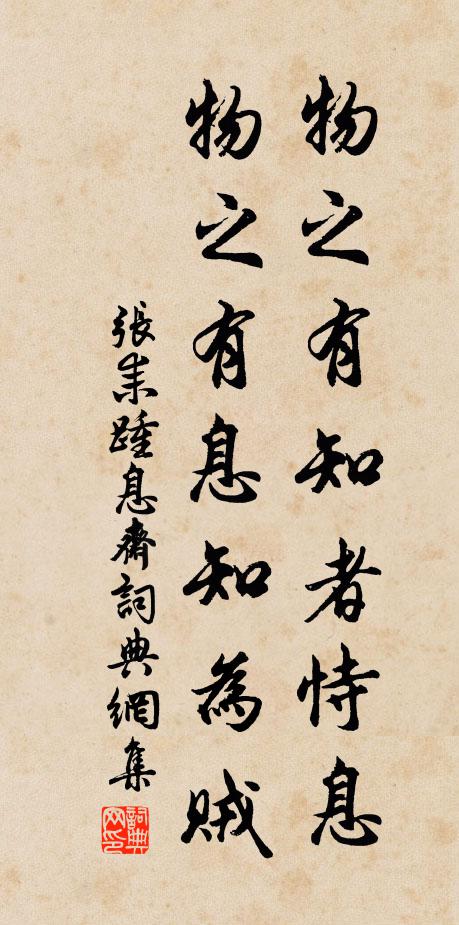 物之有知者恃息
物之有息知為賊
張耒踵息齋詞典網集
詞典網印